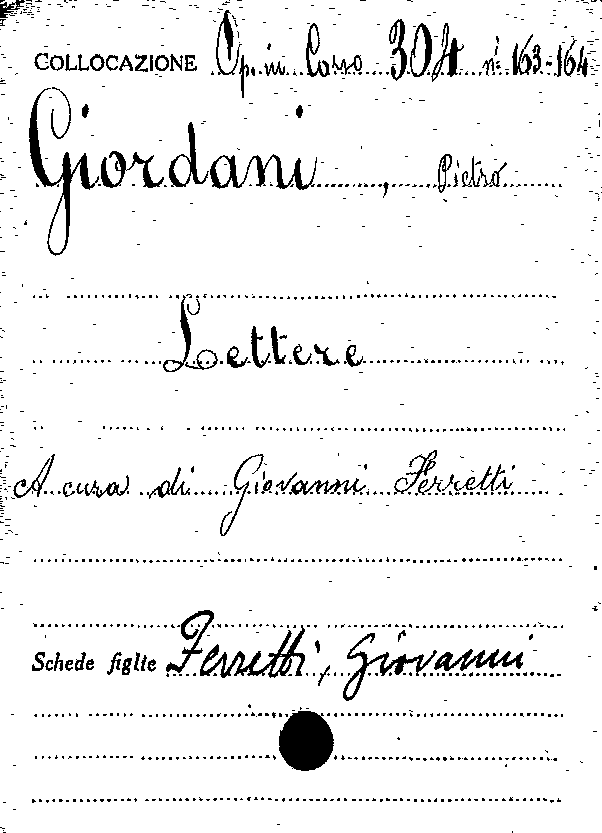 COLLOCAZIONE Op. in Corso 304 nⁱ 163-164
Giordani, Pietro
Lettere
A cura di Giovanni Ferretti
Schede figlie Ferretti, Giovanni